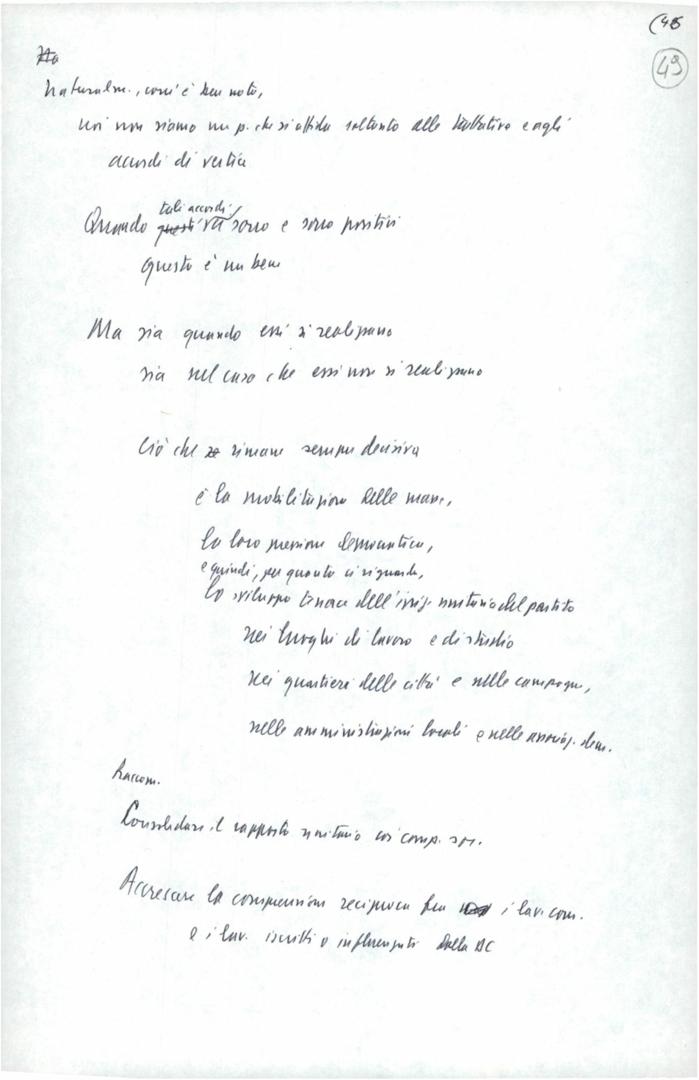 (48
49
Naturalm., com'è ben noto,
noi non siamo un p. che si affida soltanto alle trattative e agli
accordi di vertice
tali accordi
Quando questi vi sono e sono positivi
questo è un bene
Ma sia quando essi si realizzano
sia nel caso che essi non si realizzano
Ciò che rimane sempre decisiva
è la mobilitazione delle masse,
la loro pressione democratica,
e quindi, per quanto ci riguarda,
lo sviluppo tenace dell'iniz. unitaria del partito
nei luoghi di lavoro e di studio
nei quartieri delle città e nelle campagne,
nelle amministrazioni locali e nelle associaz. dem.
Raccom.
Consolidare il rapporto unitario coi comp. soc.
Accrescere la comprensione reciproca fra i lav. com.
e i lav. iscritti o influenzati dalla DC